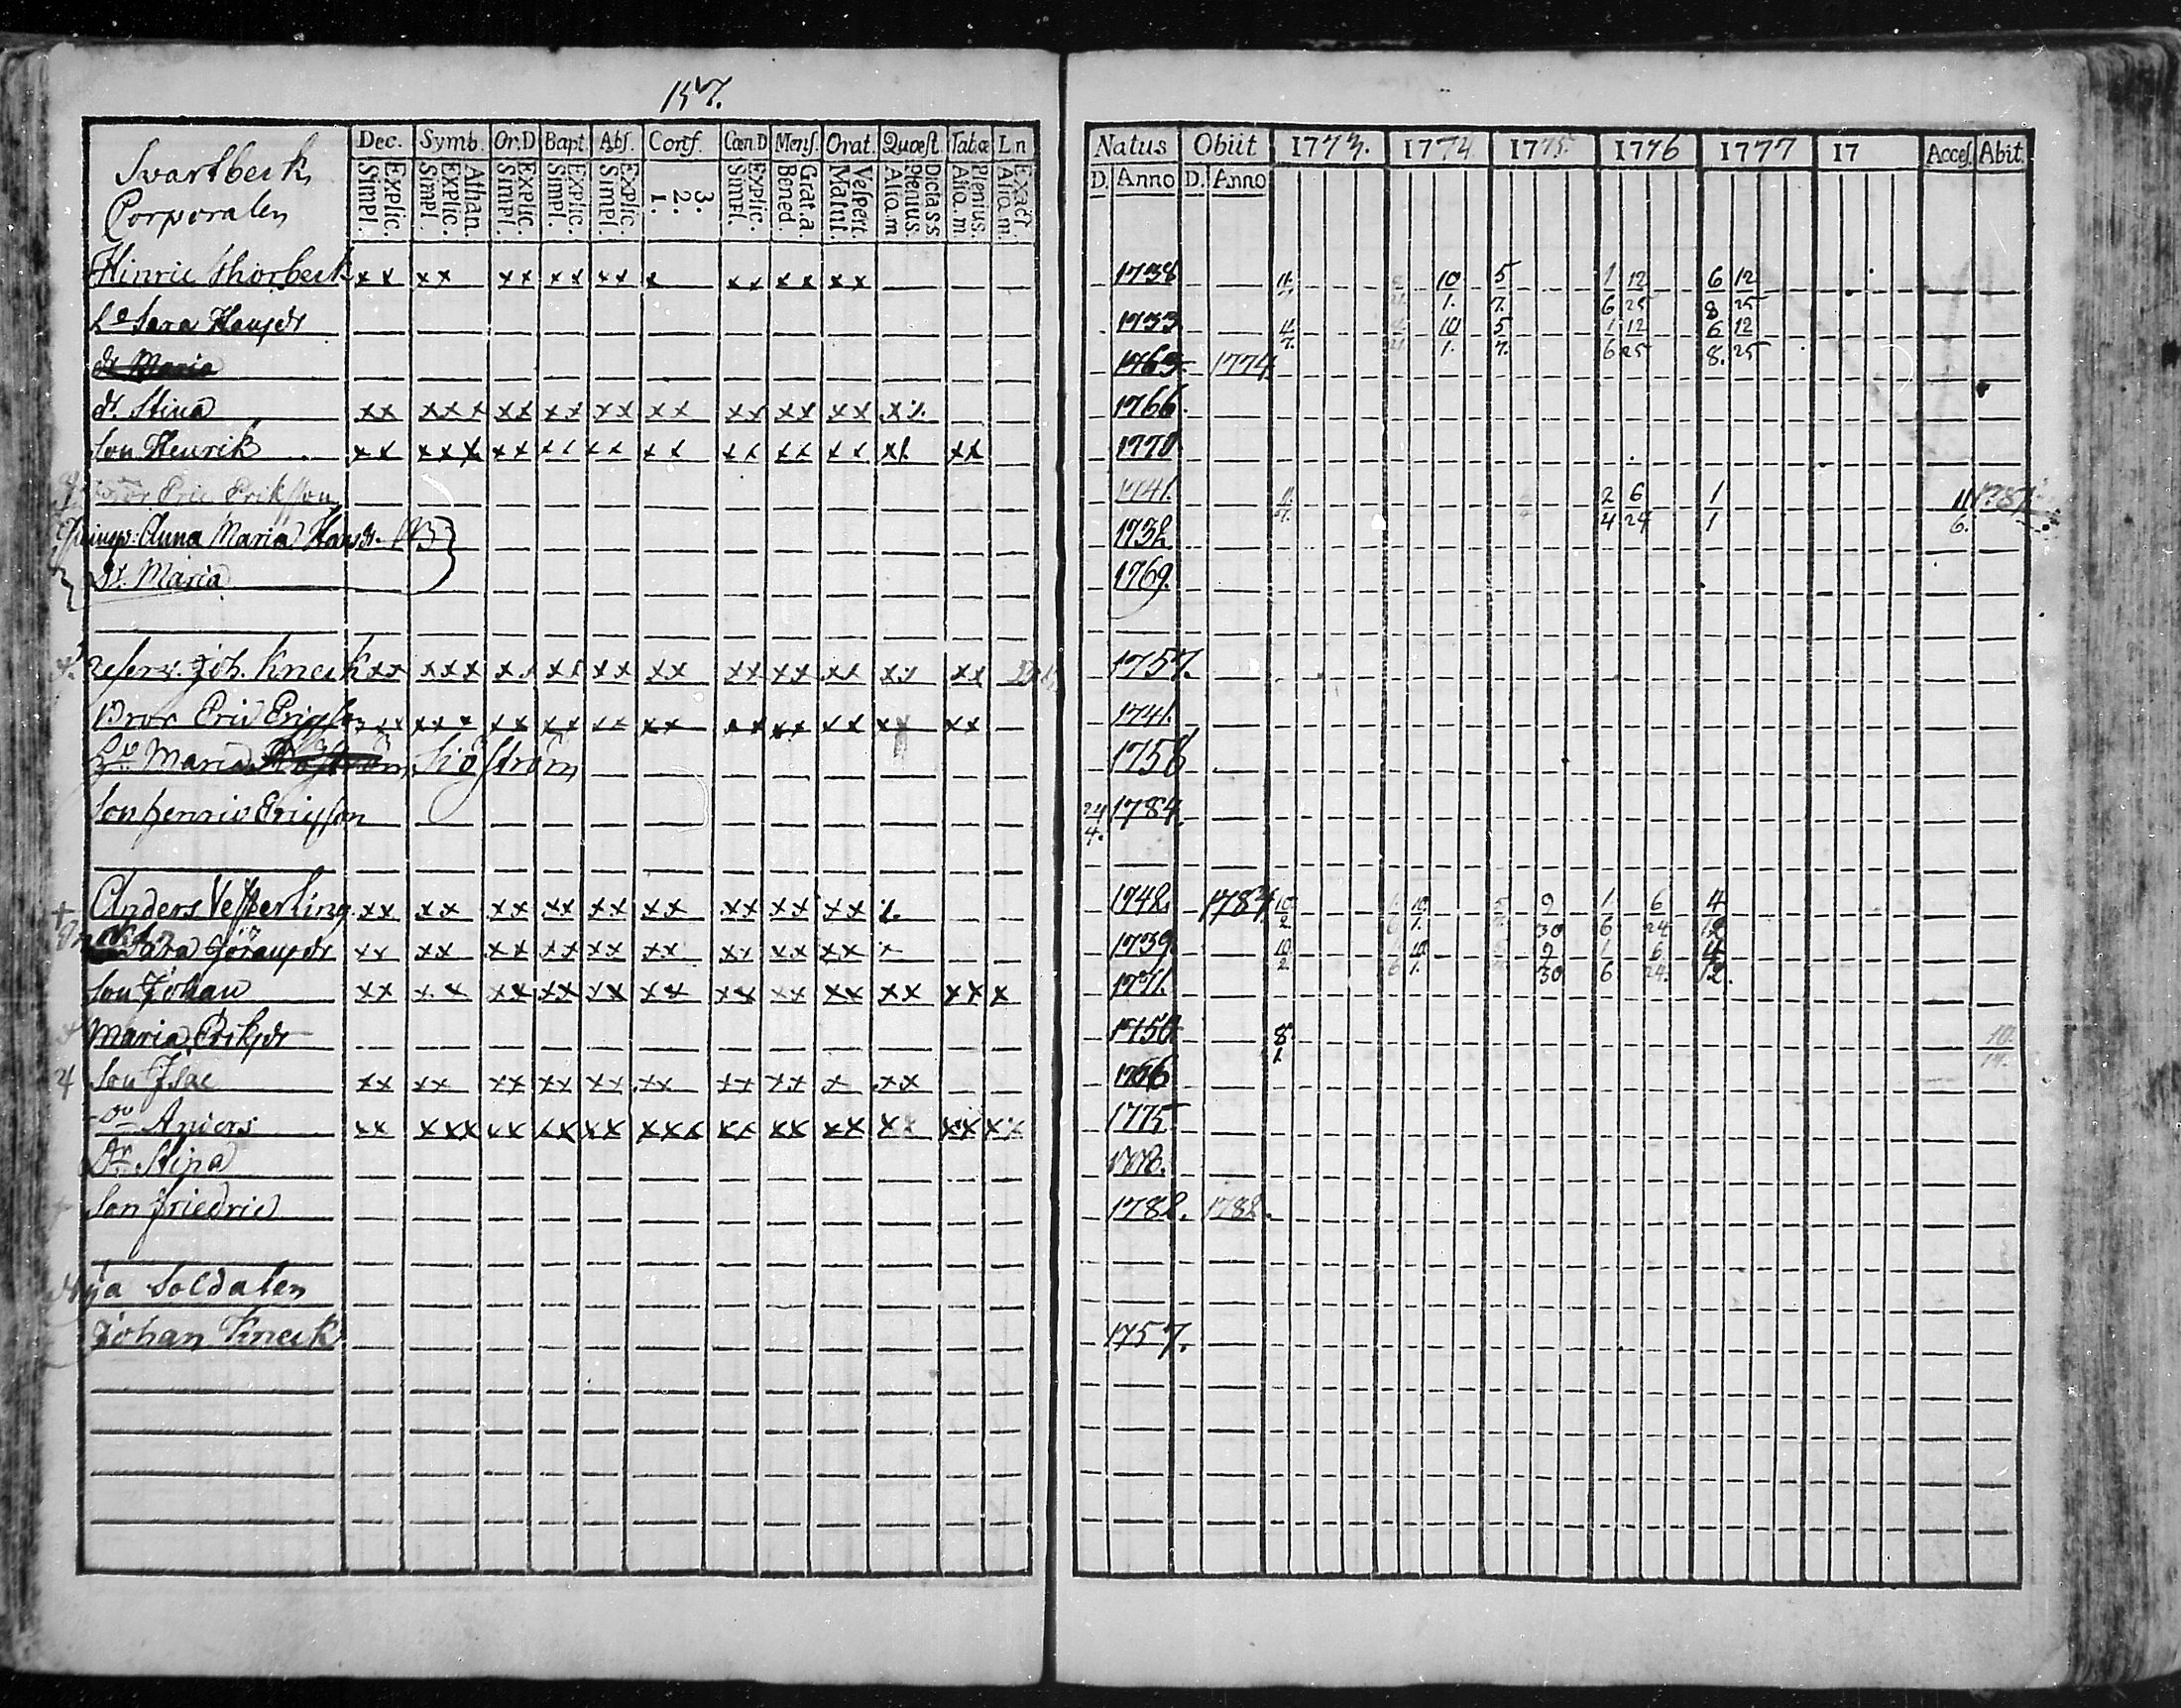 157.
Dec. Symb. Or.D Bapt. Abſ. Conf. Cœn.D Menſ. Orat. Quæſt. Tabæ Ln
Natus Obiit 1773. 1774 1775. 1776 1777 17 Acceſ. Abit.
Svartbeck,
Corporalen
Explic. Simpl. Athan. Explic. Simpl. Explic. Simpl. Explic. Simpl. Explic. Simpl. 3. 2. 1. Explic. Simpl. Grat.a Bened. Veſpert. Matut. Dicta ss. Plenius. Aliq.m Plenius. Aliq.m. Exact. Aliq.m.
D. Anno D. Anno
Hinric Thorbeck xx xx xx xx xx x xx xx xx 1738 11. 10 5 1 12 6 12
1. 7. 6 25 8 25
Sara Hansdr 1733 10 5 1 12 6 12
7. 1. 7. 6 25 8. 25
dr Maria 1763 1774
dr. Stina xx xxx xx xx xx xx xx xx xx x 1766.
Son Henrik xx xxx xx xx xx xx xx xx xx x xx 1770
Eric Eriksson 1741. 2 6 1 11 1781
4 24 1 6.
Anna Maria Hansdr. 1738
dr. Maria 1769.
Joh. Kneck xx xxx xx xx xx xx xx xx xx xx xx 1757.
Bror Eric Ericsson xx xxx xx xx xx xx xx xx xx xx xx 1741.
Maria Siöström 1756
Son Henric Ericsson 24 4. 1784.
Anders Vesperling xx xx xx xx xx xx xx xx xx 1748. 1784 10 10 9 1 6 4
2 1. 30 6 24 12
Sara Göransdr xx xx xx xx xx xx xx xx xx x 1739 10 10 9 1 6 4
2. 6 1. 30 6 24. 12.
Son Johan xx xx xx xx xx xx xx xx xx xx xx x 1771.
Maria Eriksdr 1750 8. 1. 10. 14.
4 Son Isac xx xx xx xx xx xx xx xx x xx 1766
Anders xx xxx xx xx xx xxx xx xx xx xx xx xx 1775
Dr Stina 1778.
Son Friedric 1788. 1788.
Nya Soldaten
Johan Kneck 1757.